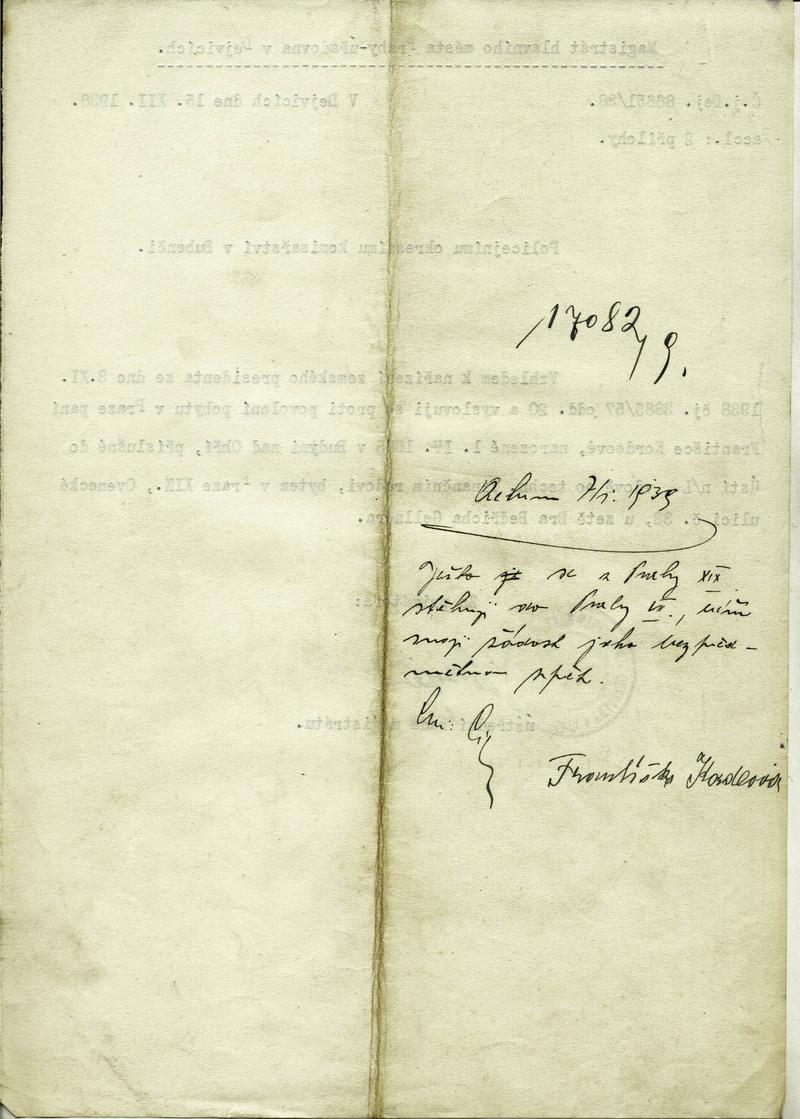 Magistrát hlavního města Prahy-úřadovna v Dejvicích.
Č.j.Dej. 86651/38. V Dejvicích dne 15. XII. 1938.
2 přílohy.
Policejnímu okresnímu komisařství v Bubenči.
17082/9.
Vzhledem k nařízení zemského presidenta ze dne 3.XI.
1938 čj. odd. 20 a vyslovuji se proti povolení pobytu v Praze paní
Františce Kordeové, narozené 1. IV. v Budyni nad Ohří, příslušné do
Ústí n/L. finančním radovi, bytem v Praze XIX., Ovenecké
ulici č. 38, u zetě Dra Bedřicha Gellnera.
Actum 7/1. 1939
Ješto se z Prahy XIX
stěhuji do Prahy
moji žádost jako bezpřed-
mětnou zpět.
magistrátu.
Františka Kordeová